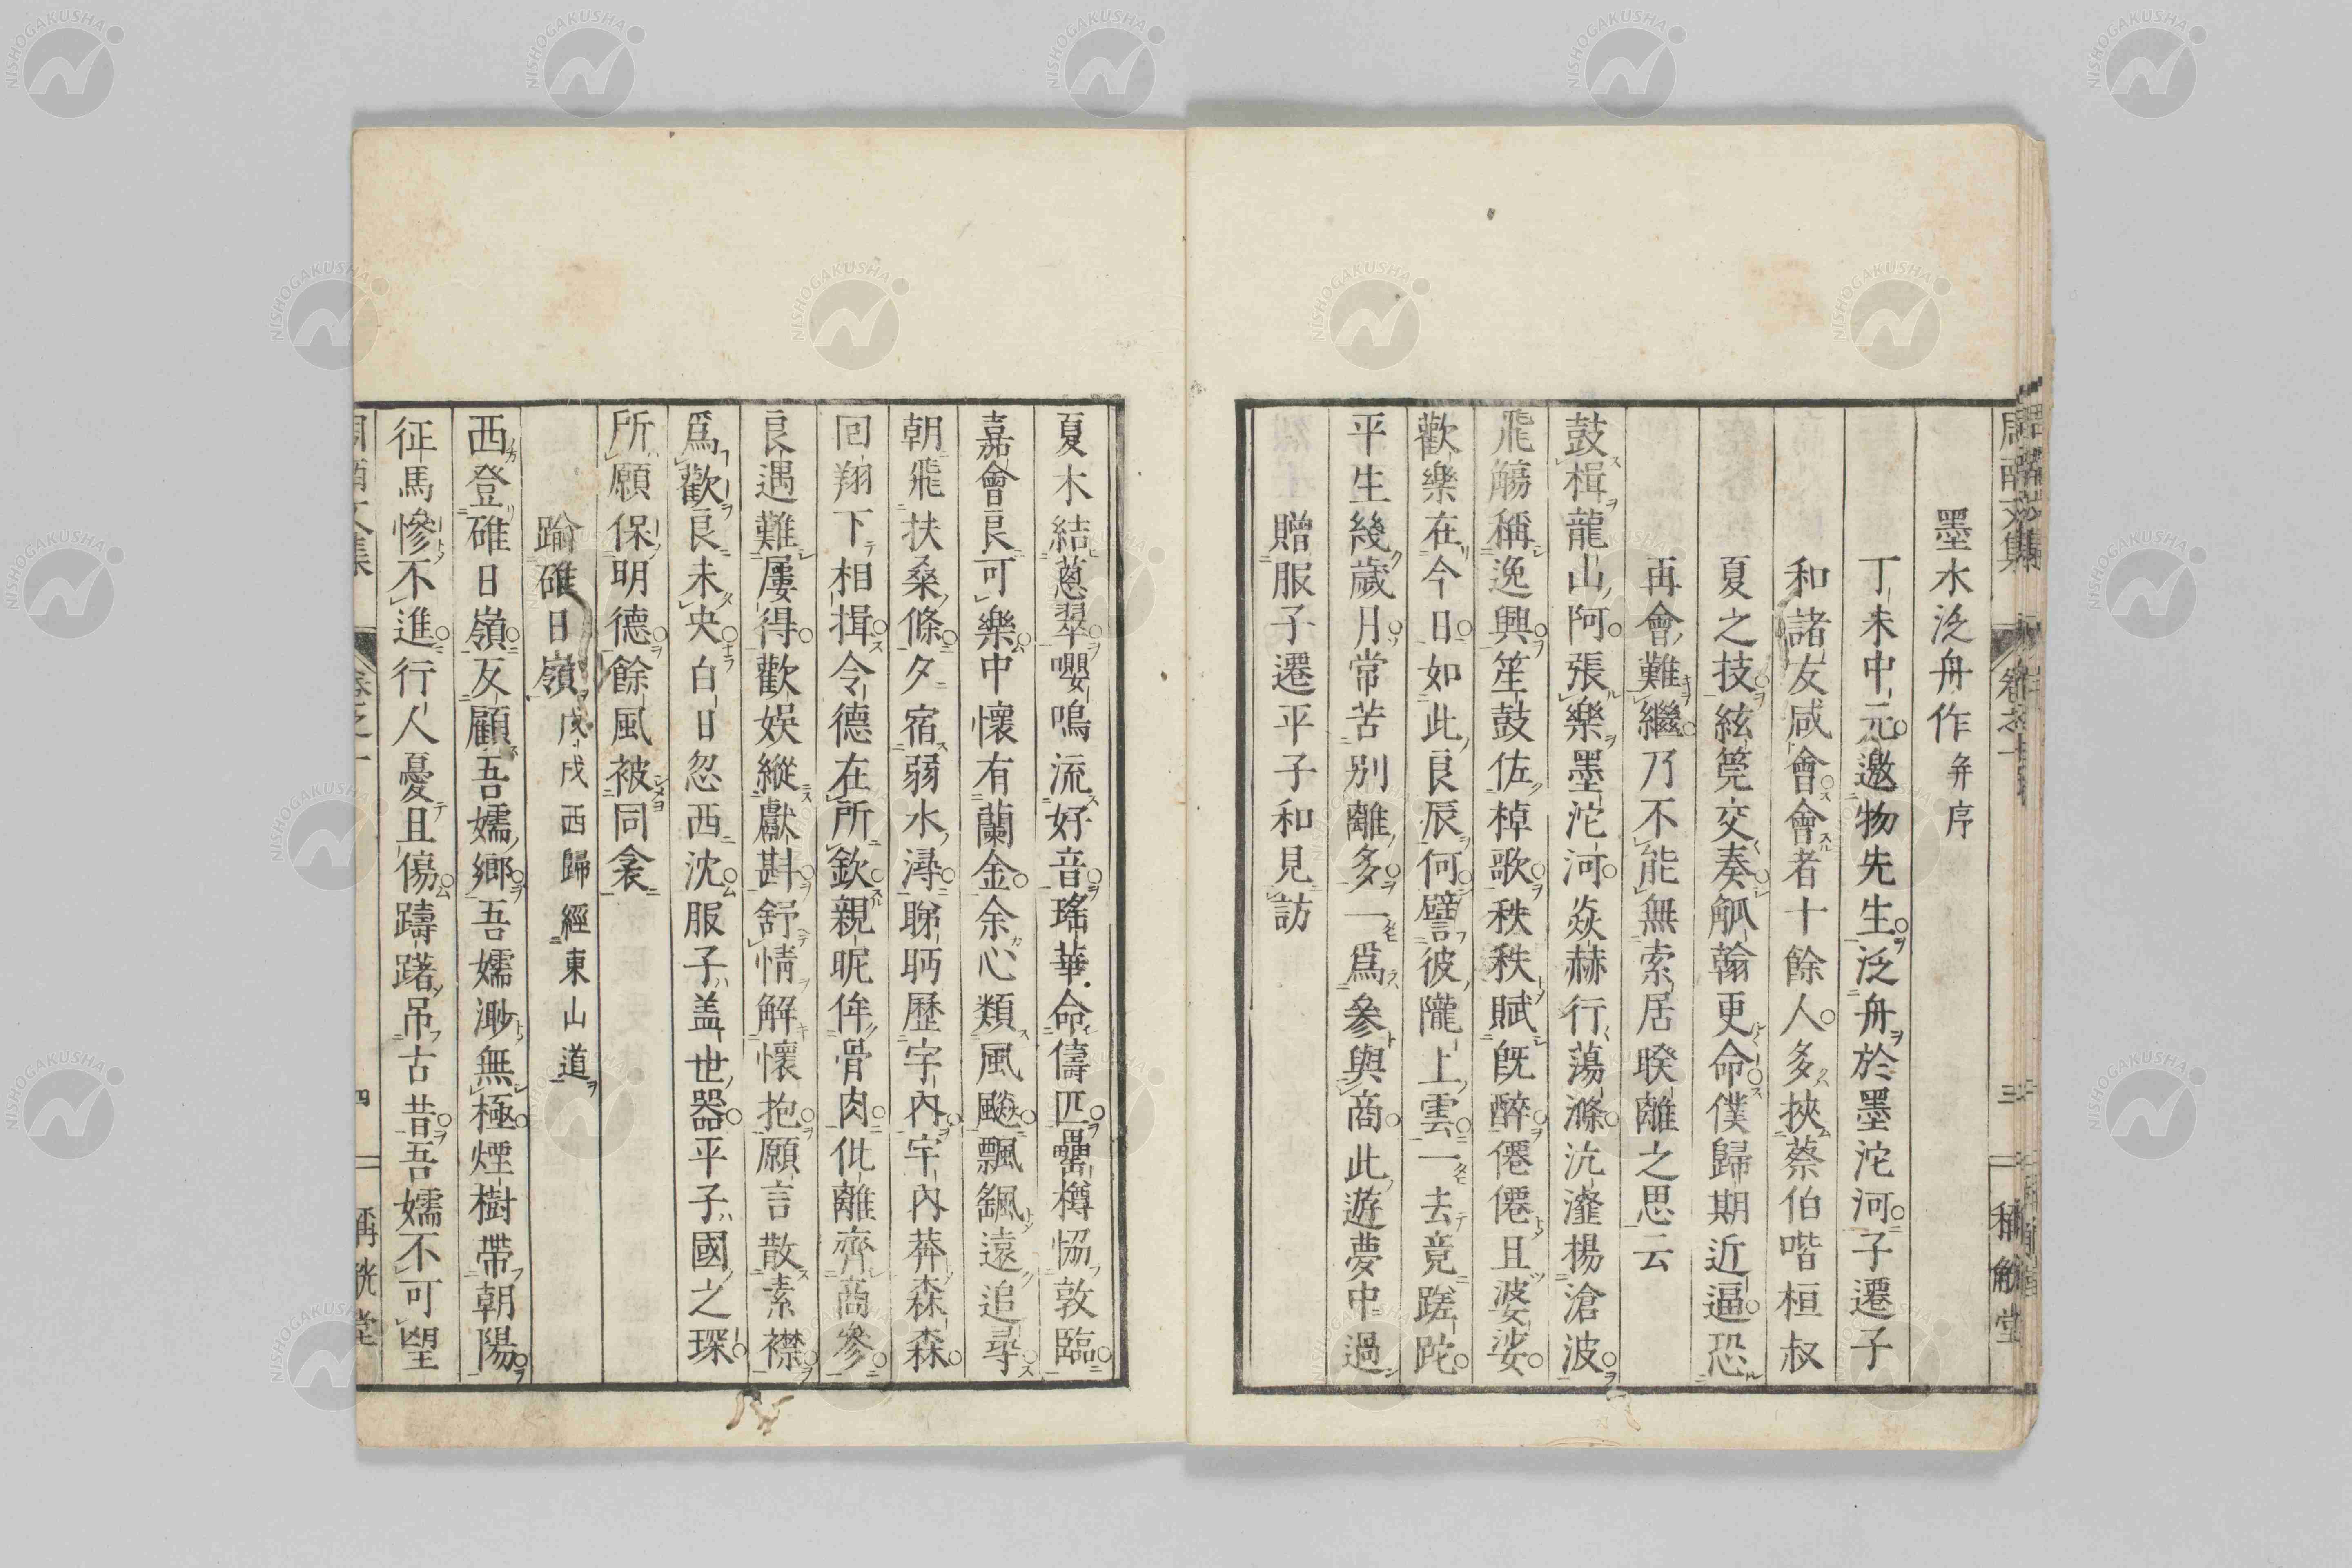 墨水泛舟作 并序
丁未中元邀物先生泛舟於墨沱河子遷子
和諸友咸會會者十餘人多挾蔡伯喈桓叔
夏之技絃筦交奏觚翰更命僕歸期近逼恐
再會難繼乃不能無索居暌離之思云
鼓楫龍山阿張樂墨沱河焱赫行蕩滌沆瀣揚滄波
飛觴稱逸興笙鼓佐棹歌秩秩賦既醉僊僊且婆娑
歡樂在今日如此良辰何譬彼隴上雲一去竟蹉跎
平生幾歲月常苦別離多一爲參與商此遊夢中過
贈服子遷平子和見訪
夏木結蔥翠嚶鳴流好音瑤華命儔匹罍樽恊敦臨
嘉會良可樂中懷有蘭金余心類風飈飄颻遠追尋
朝飛扶桑條夕宿弱水潯睇眄歷宇內宇內莽森森
回翔下相揖令德在所欽親昵侔骨肉仳離齊商參
良遇難屢得歡娯縱獻斟舒情解懷抱願言散素襟
爲歡良未央白日忽西沈服子盖世器平子國之琛
所願保明德餘風被同衾
踰碓日嶺 戊戌西歸經東山道
西登碓日嶺友顧吾嬬鄉吾嬬渺無極煙樹帶朝陽
征馬慘不進行人憂且傷躊躇吊古昔吾嬬不可望
四
稱觥堂